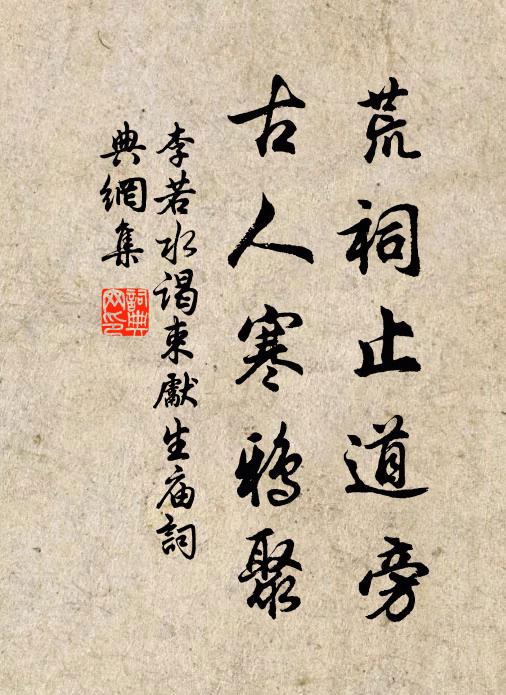 荒祠止道旁
古人寒鸦聚
李若水谒束獻生庙詞
典網集
詞典网印